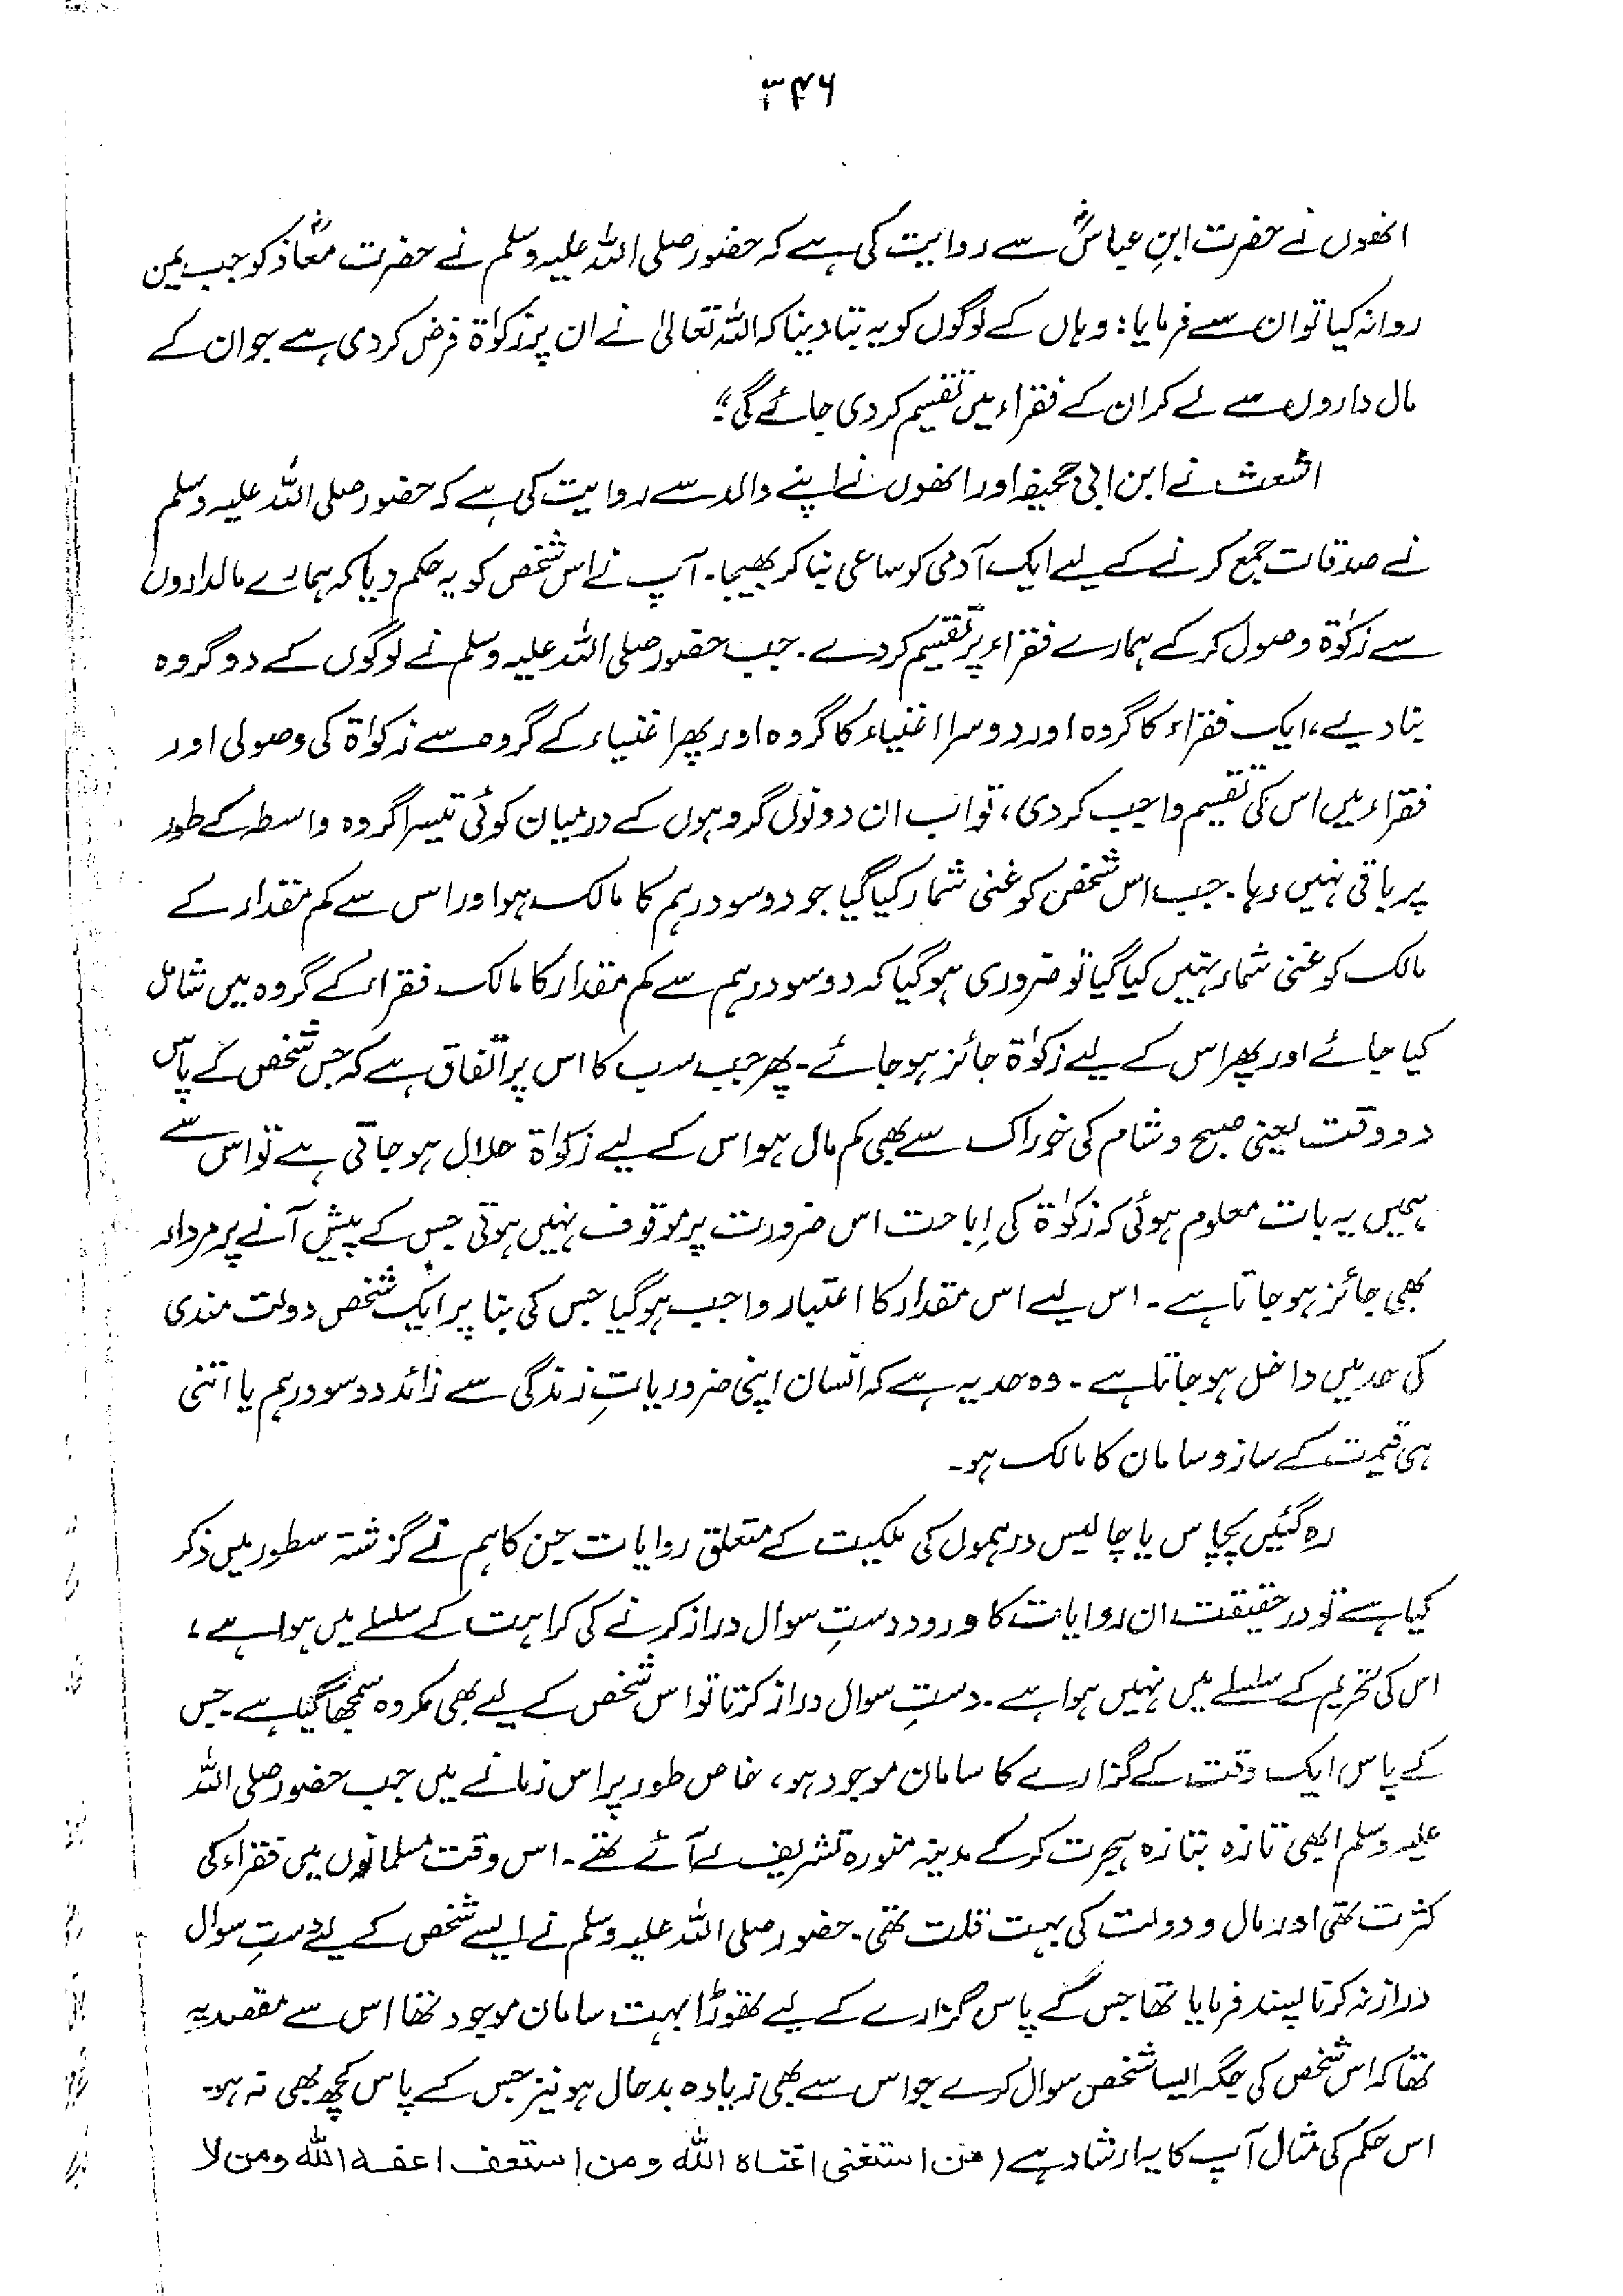 ۳۴۶
انھوں نے حضرت ابنِ عباسؓ سے روایت کی ہے کہ حضور صلی اللہ علیہ وسلم نے حضرت معاذؓ کو جب یمن
روانہ کیا تو ان سے فرمایا: وہاں کے لوگوں کو یہ بتا دینا کہ اللہ تعالیٰ نے ان پر زکوٰۃ فرض کر دی ہے جو ان کے
مال داروں سے لے کر ان کے فقراء میں تقسیم کر دی جائے گی"۔
اشعث نے ابن ابی جحیفہ اور انھوں نے اپنے والد سے روایت کی ہے کہ حضور صلی اللہ علیہ وسلم
نے صدقات جمع کرنے کے لیے ایک آدمی کو ساعی بنا کر بھیجا۔ آپ نے اس شخص کو یہ حکم دیا کہ ہمارے مالداروں
سے زکوٰۃ وصول کر کے ہمارے فقراء پر تقسیم کر دے۔ جب حضور صلی اللہ علیہ وسلم نے لوگوں کے دو گروہ
بنا دیے، ایک فقراء کا گروہ اور دوسرا اغنیاء کا گروہ اور پھر اغنیاء کے گروہ سے زکوٰۃ کی وصولی اور
فقراء میں اس کی تقسیم واجب کر دی، تو اب ان دونوں گروہوں کے درمیان کوئی تیسرا گروہ واسطہ کے طور
پر باقی نہیں رہا۔ جب اس شخص کو غنی شمار کیا گیا جو دو سو درہم کا مالک ہو اور اس سے کم مقدار کے
مالک کو غنی شمار نہیں کیا گیا تو ضروری ہو گیا کہ دو سو درہم سے کم مقدار کا مالک فقراء کے گروہ میں شامل
کیا جائے اور پھر اس کے لیے زکوٰۃ جائز ہو جائے۔ پھر جب سب کا اس پر اتفاق ہے کہ جس شخص کے پاس
دو وقت یعنی صبح و شام کی خوراک سے بھی کم مال ہو اس کے لیے زکوٰۃ حلال ہو جاتی ہے تو اس سے
ہمیں یہ بات معلوم ہوئی کہ زکوٰۃ کی اِباحت اس ضرورت پر موقوف نہیں ہوتی جس کے پیش آنے پر مردار
بھی جائز ہو جاتا ہے۔ اس لیے اس مقدار کا اعتبار واجب ہو گیا جس کی بنا پر ایک شخص دولت مندی
کی حد میں داخل ہو جاتا ہے۔ وہ حد یہ ہے کہ انسان اپنی ضروریاتِ زندگی سے زائد دو سو درہم یا اتنی
ہی قیمت کے ساز و سامان کا مالک ہو۔
رہ گئیں پچاس یا چالیس درہموں کی ملکیت کے متعلق روایات جن کا ہم نے گزشتہ سطور میں ذکر
کیا ہے تو درحقیقت ان روایات کا ورود دستِ سوال دراز کرنے کی کراہت کے سلسلے میں ہوا ہے،
اس کی تحریم کے سلسلے میں نہیں ہوا ہے۔ دستِ سوال دراز کرنا تو اس شخص کے لیے بھی مکروہ سمجھا گیا ہے۔ جس
کے پاس ایک وقت کے گزارے کا سامان موجود ہو، خاص طور پر اس زمانے میں جب حضور صلی اللہ
علیہ وسلم ابھی تازہ بتازہ ہجرت کر کے مدینہ منورہ تشریف لے آئے تھے۔ اس وقت مسلمانوں میں فقراء کی
کثرت تھی اور مال و دولت کی بہت قلت تھی۔ حضور صلی اللہ علیہ وسلم نے ایسے شخص کے لیے دستِ سوال
دراز نہ کرنا پسند فرمایا تھا جس کے پاس گزارے کے لیے تھوڑا بہت سامان موجود تھا اس سے مقصد یہ
تھا کہ اس شخص کی جگہ ایسا شخص سوال کرے جو اس سے بھی زیادہ بدحال ہو نیز جس کے پاس کچھ بھی نہ ہو۔
اس حکم کی مثال آپ کا یہ ارشاد ہے (من استغنی اغناہ اللہ ومن استعف اعفہ اللہ ومن لا